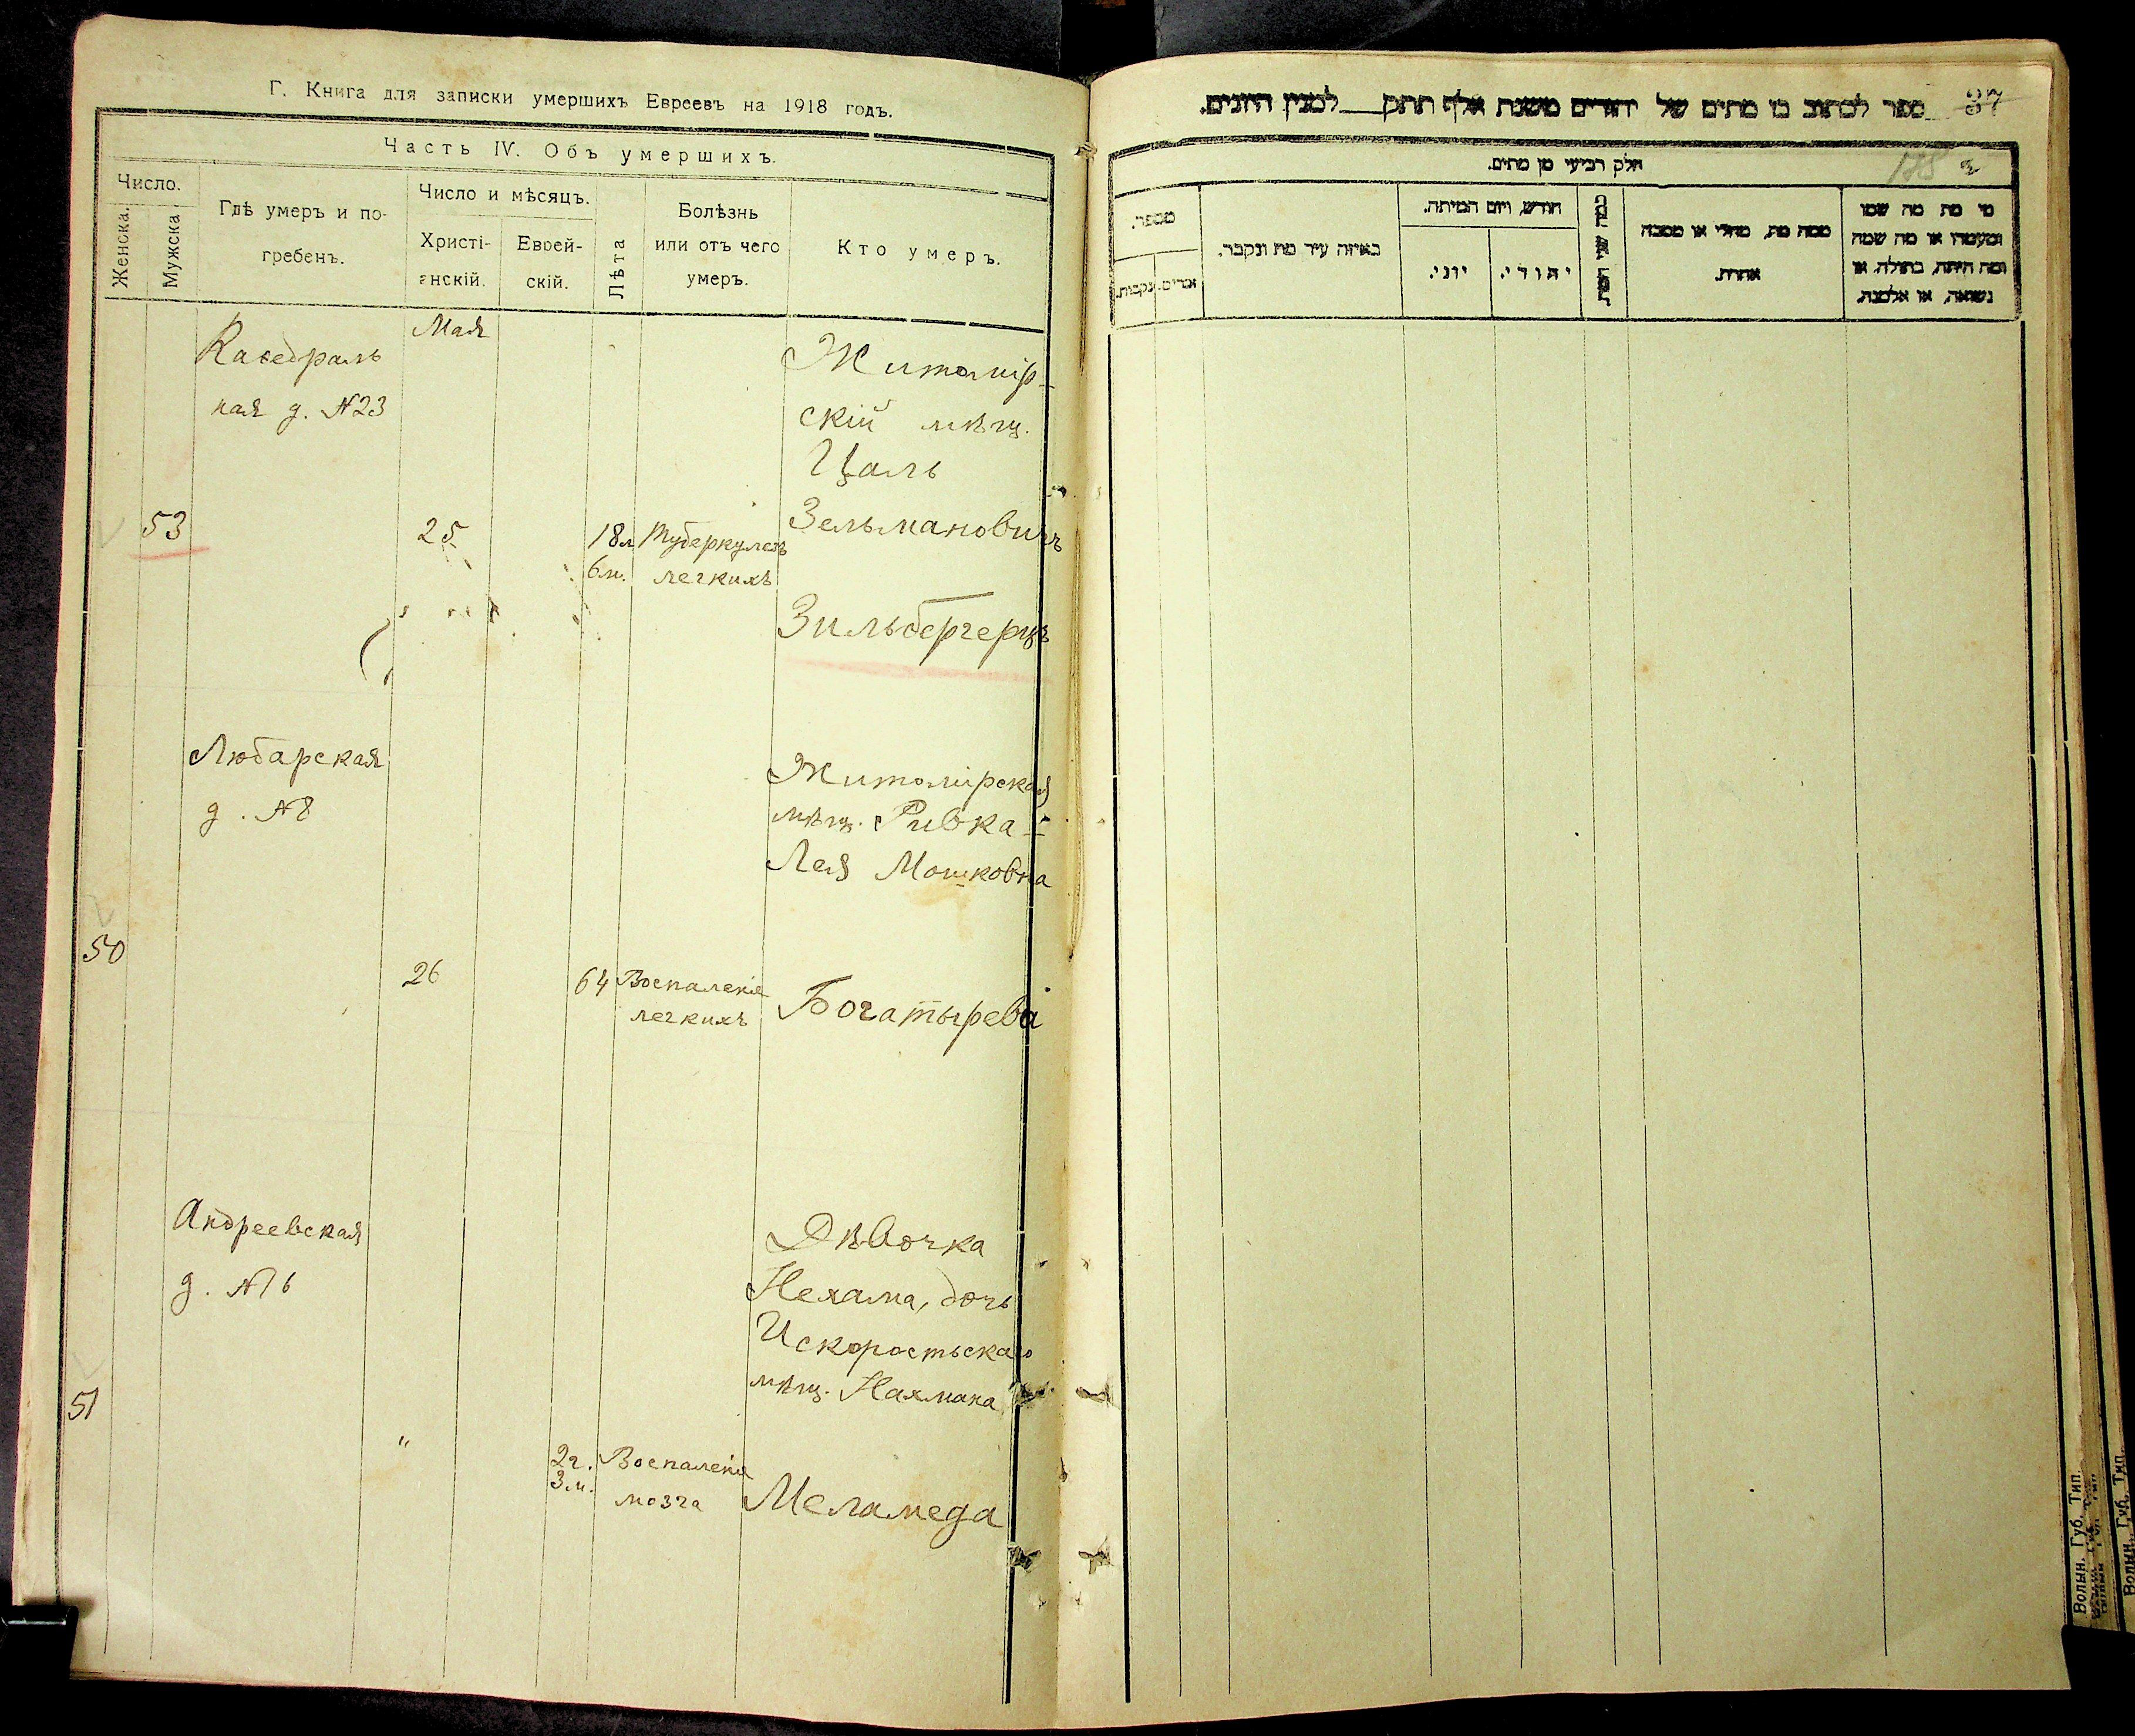 Г. Книга для записки умершихъ Евреевъ на 1918 годъ.
Часть IV. Объ умершихъ.
Число.
Женска.
Мужска
Гдѣ умеръ и по-
гребенъ.
Число и мѣсяцъ.
Христі-
анскій.
Еврей-
скій.
Лѣта
Болѣзнь
или отъ чего
умеръ.
Кто умеръ.
Маія
Каѳедраль
ная д. №23
Житомір-
скій мѣщ.
Цаль
Зельмановичъ
53
25
18л
6м.
Туберкулезъ
легкихъ
Зильбергерцъ
Любарская
д. №8
Житомірская
мѣщ. Ривка-
Лея Мошковна
50
26
64
Воспаленіе
легкихъ
Богатырева
Андреевская
д. №16
Дѣвочка
Нехама, дочь
Искоростьскаго
мѣщ. Нахмана
51
"
2г.
3м.
Воспаленіе
мозга
Меламеда
ספר לכתוב בו מתים של יהודים משנת אלף תתק למנין היונים.
37
חלק רביעי מן מתים.
178
מספר.
זכרים.
נקבות.
באיזה עיר מת ונקבר.
חודש, ויום המיתה.
יוני.
יהודי.
כמה שני
ממה מת, מחלי או מסבה
אחרת.
מי מת מה שמו
ומעמדו או מה שמה
ומה היתה, בתולה, או
נשואה, או אלמנה.
Волын. Губ. Тип.
Волын. Губ. Тип.